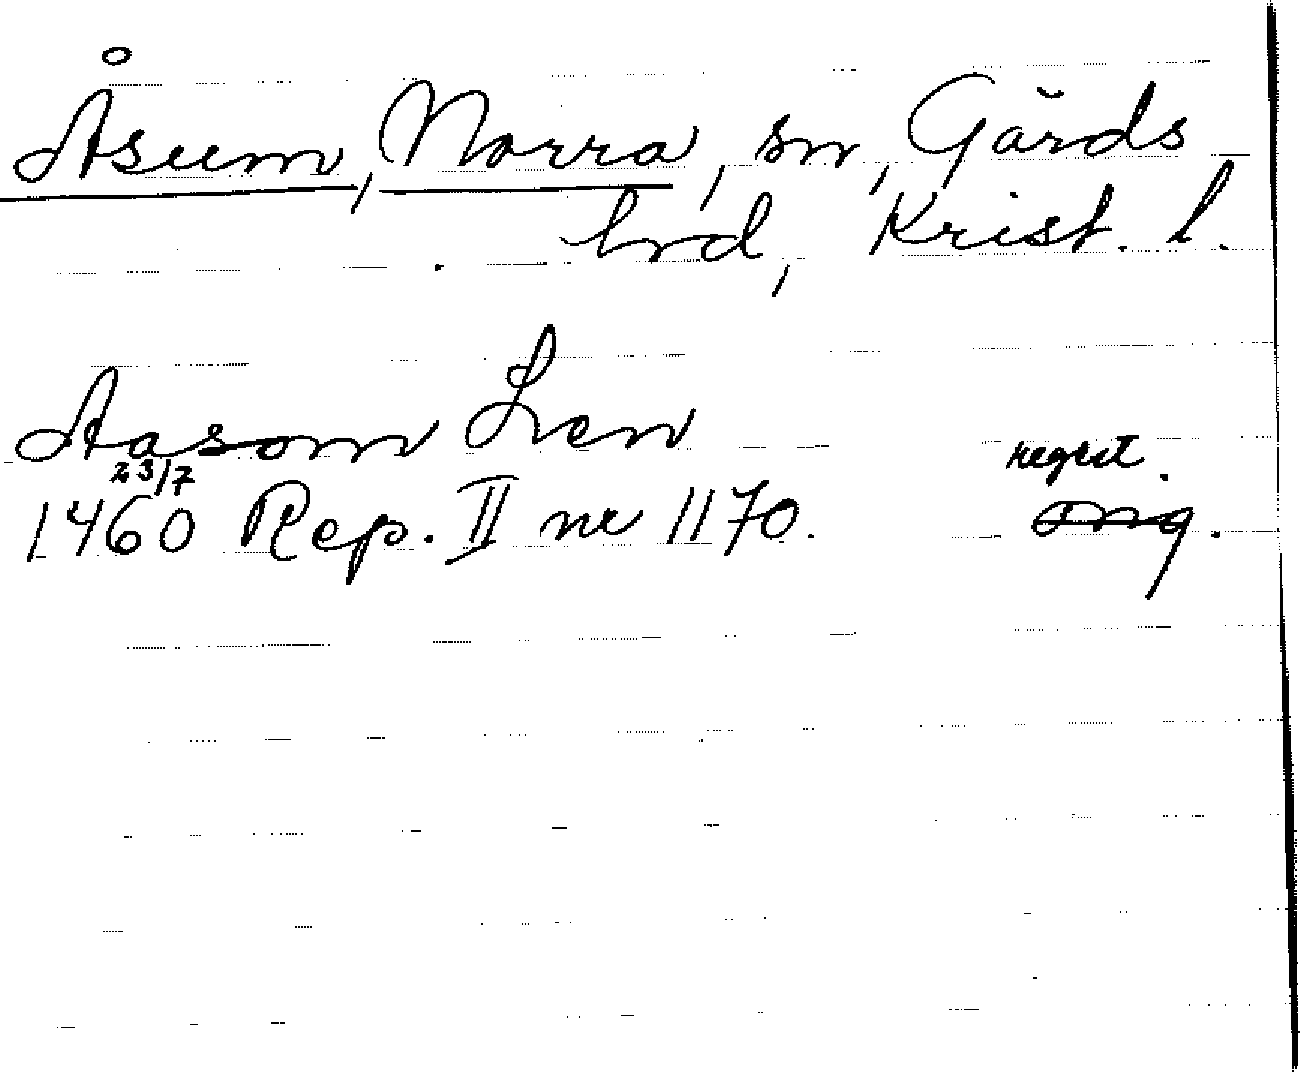 Åsum, Norra, sn, Gärds
hrd, Krist. l.
Aasom Len
23/7
1460 Rep. II nr 1170.
regist.